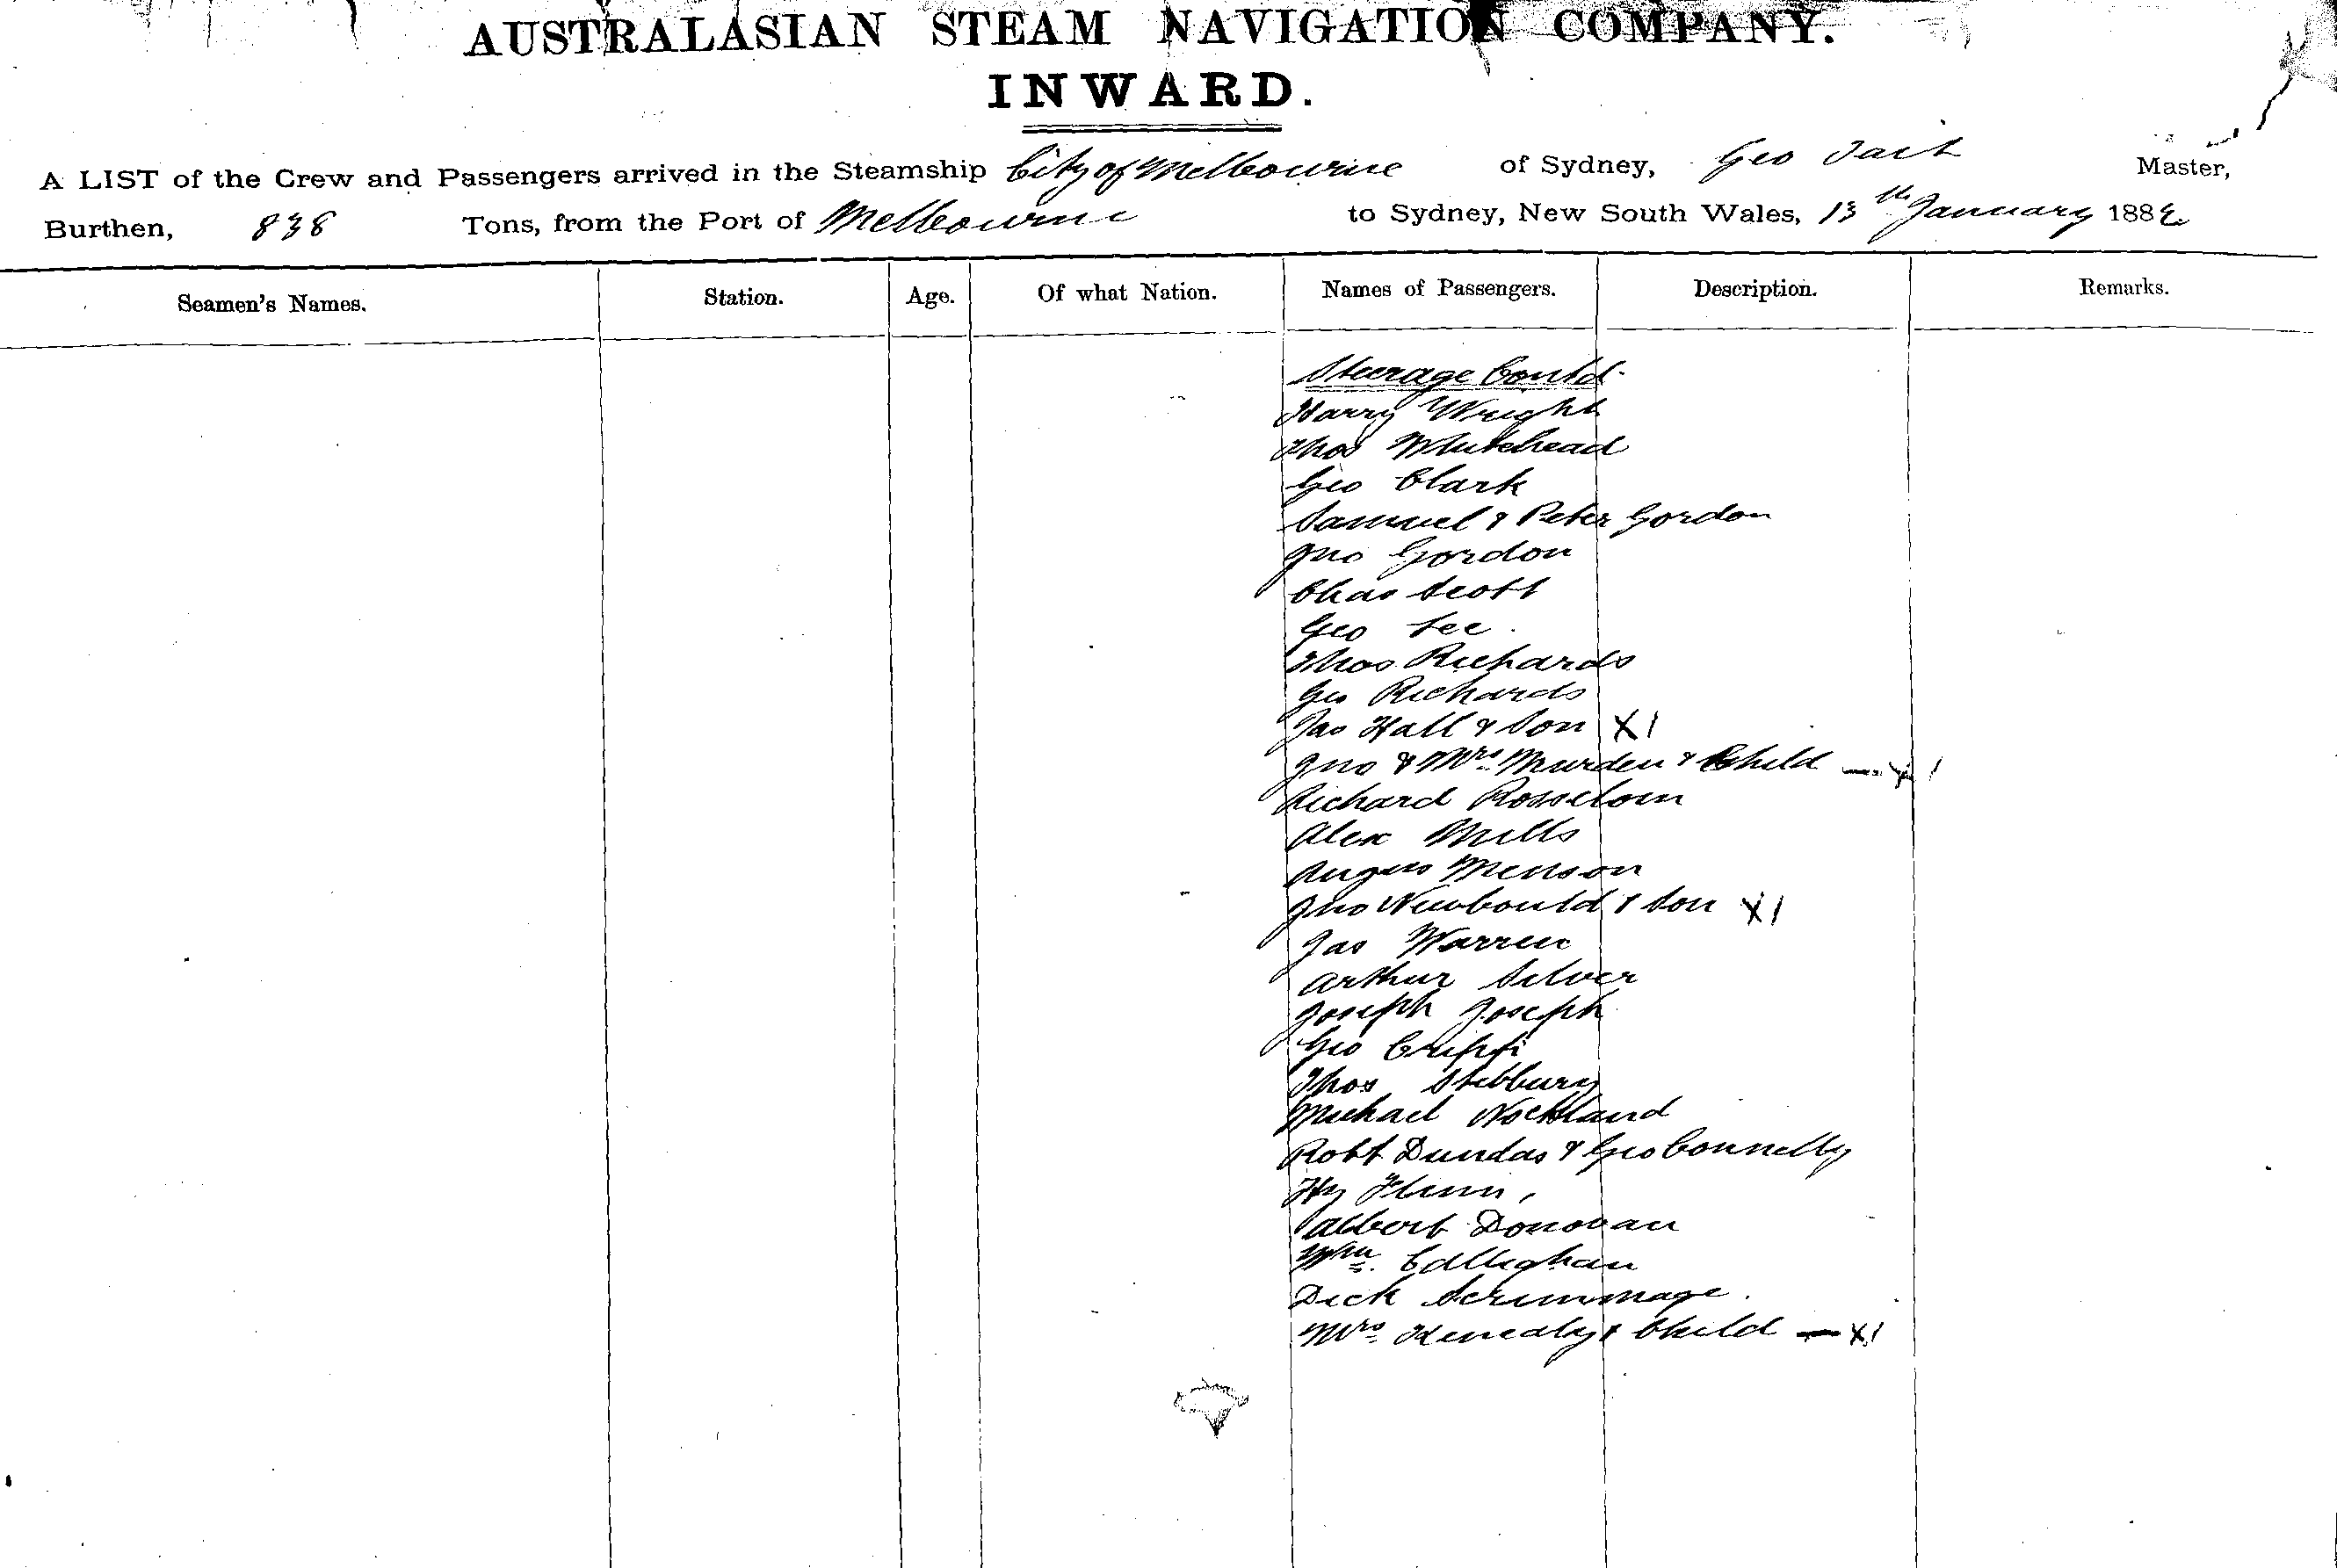 AUSTRALASIAN STEAM NAVIGATION COMPANY.
INWARD.
A LIST of the Crew and Passengers arrived in the Steamship City of Melbourne of Sydney, Geo Tait Master,
Burthen, 838 Tons, from the Port of Melbourne to Sydney, New South Wales, 13th January 1882
Seamen's Names. Station. Age. Of what Nation. Names of Passengers. Description. Remarks.
Steerage Contd.
Harry Wright
Thos Whitehead
Geo Clark
Samuel & Peter Gordon
Jno Gordon
Chas Scott
Geo Lee.
Thos Richards
Geo Richards
Jas Hall & Son X1
Jno & Mrs Murden & Child — X1
Richard
Alex Mills
Angus Menson
Jno Newbould & Son X1
Jas Warren
Arthur Silver
Joseph Joseph
Geo
Thos Stebbury
Michael
Robt Dundas & Geo Connelly
Hy Flinn,
Albert Donovan
Wm. Callighan
Dick Scrimmage.
Mrs. Kenealy & Child — X1